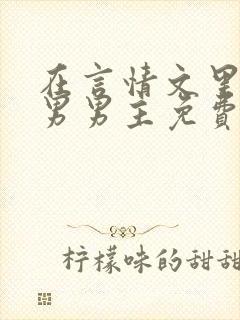 在言情文里
男男主免费
柠檬味的甜甜